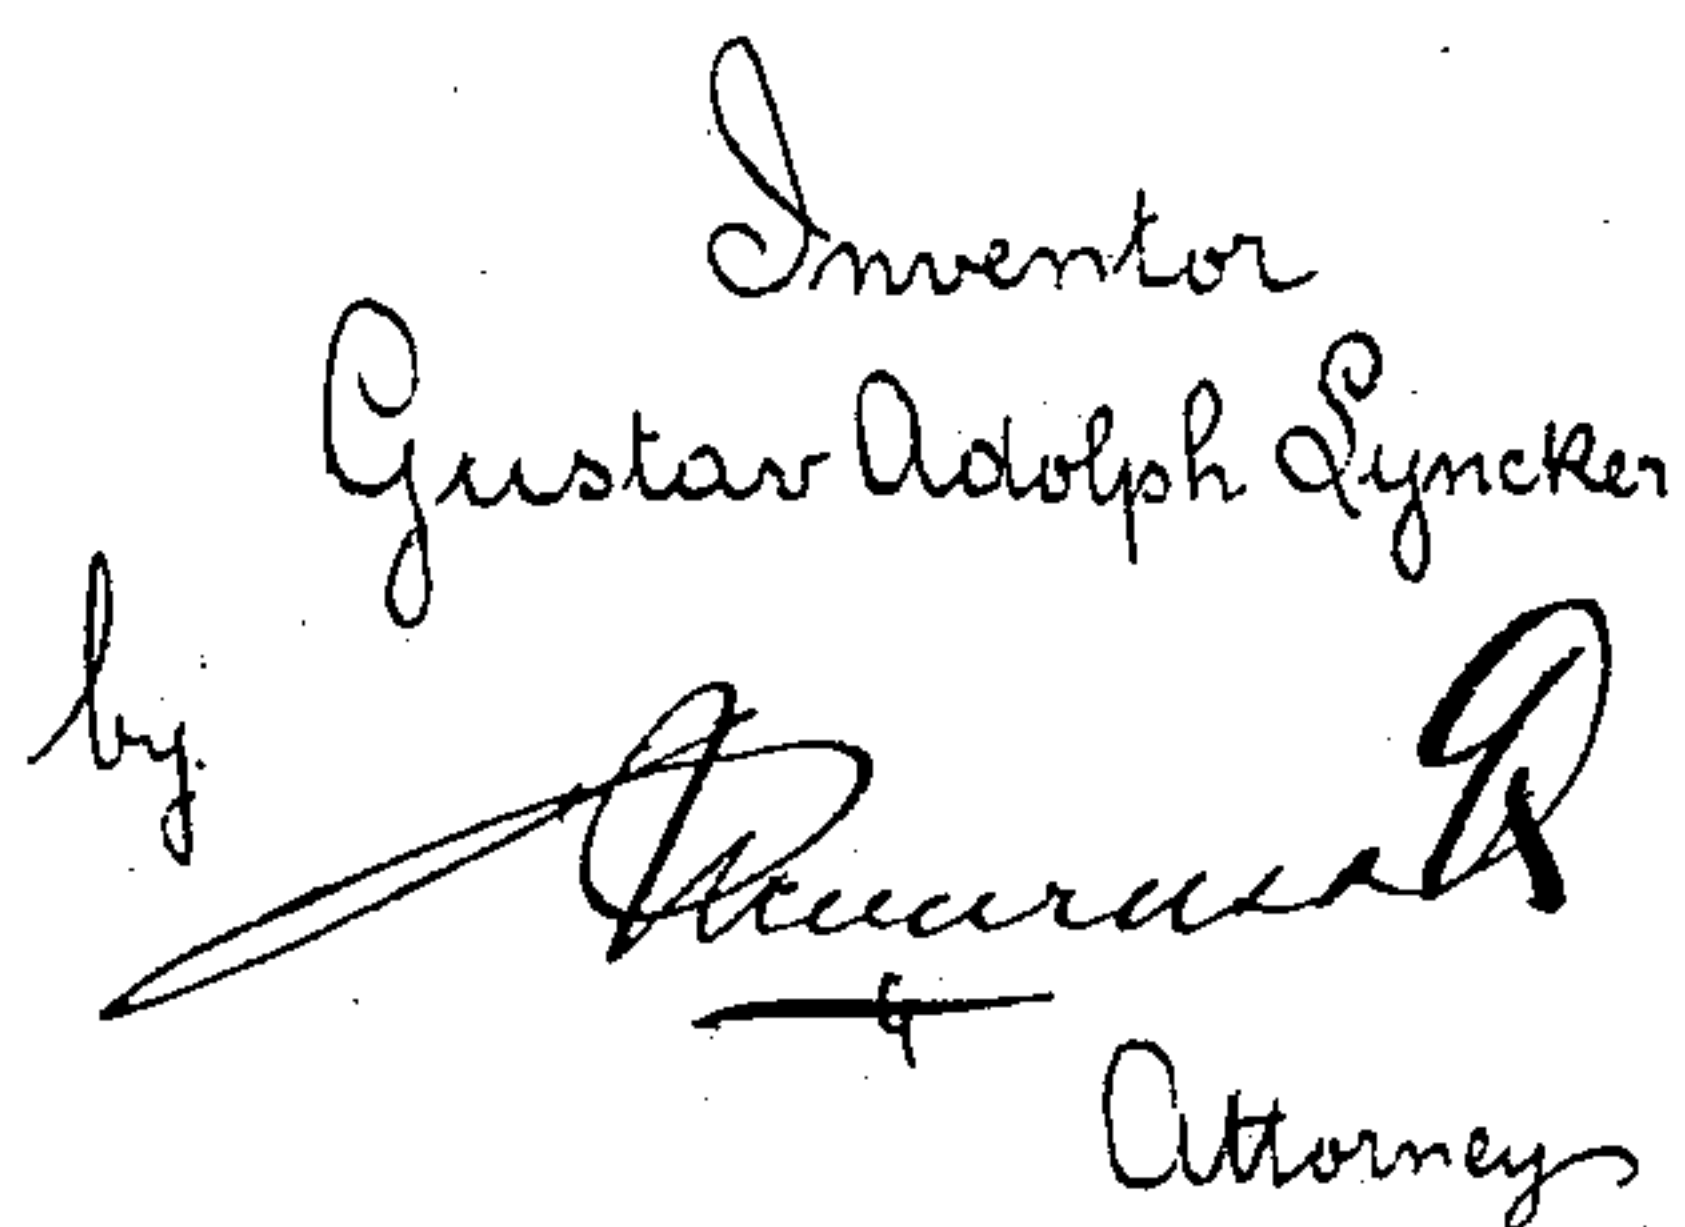 Inventor
Gustav Adolph Lyncker
by.
Attorney